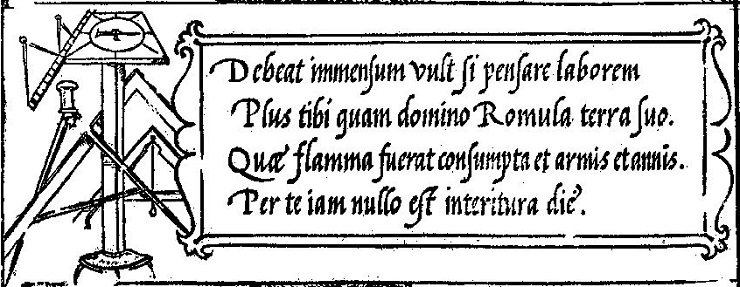 Debeat immensum vult si pensare laborem
Plus tibi quam domino Romula terra suo.
Quæ flamma fuerat consumpta et armis et annis.
Per te iam nullo est interitura die.